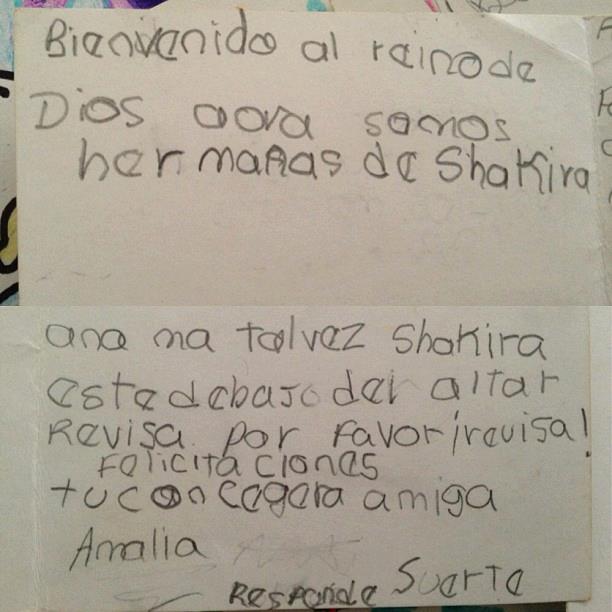 Bienvenido al reinode
Dios aora somos
hermanas de Shakira
ana ma talvez Shakira
este debajo del altar
Revisa por favor ¡revisa!
Felicitaciones
tu concegera amiga
Amalia
Responde Suerte